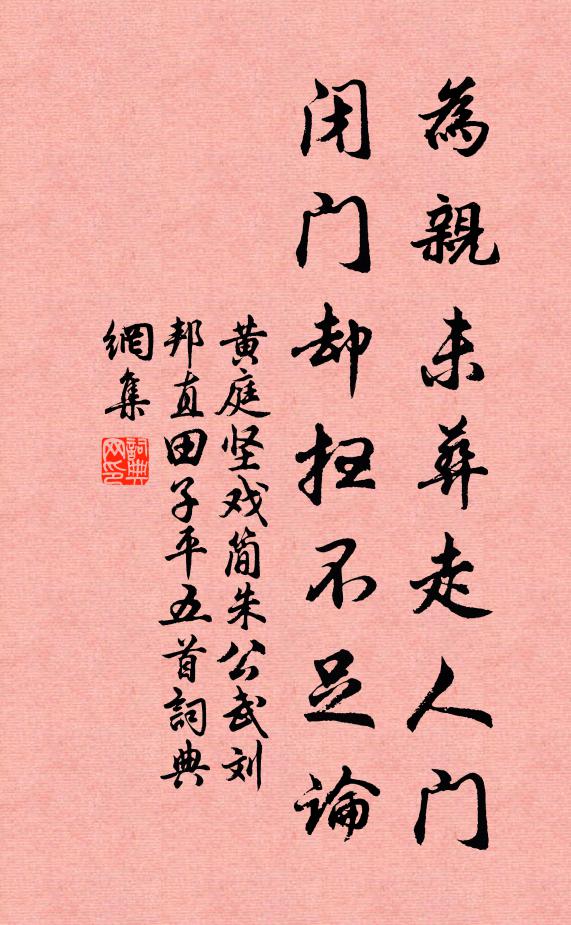 為親未葬走人门
闭门却扫不足論
黄庭坚戏简朱公武刘
邦直田子平五首詞典
網集
詞典
网印